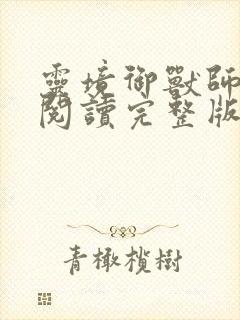 靈境御獸師
閱讀完整版
青橄欖樹